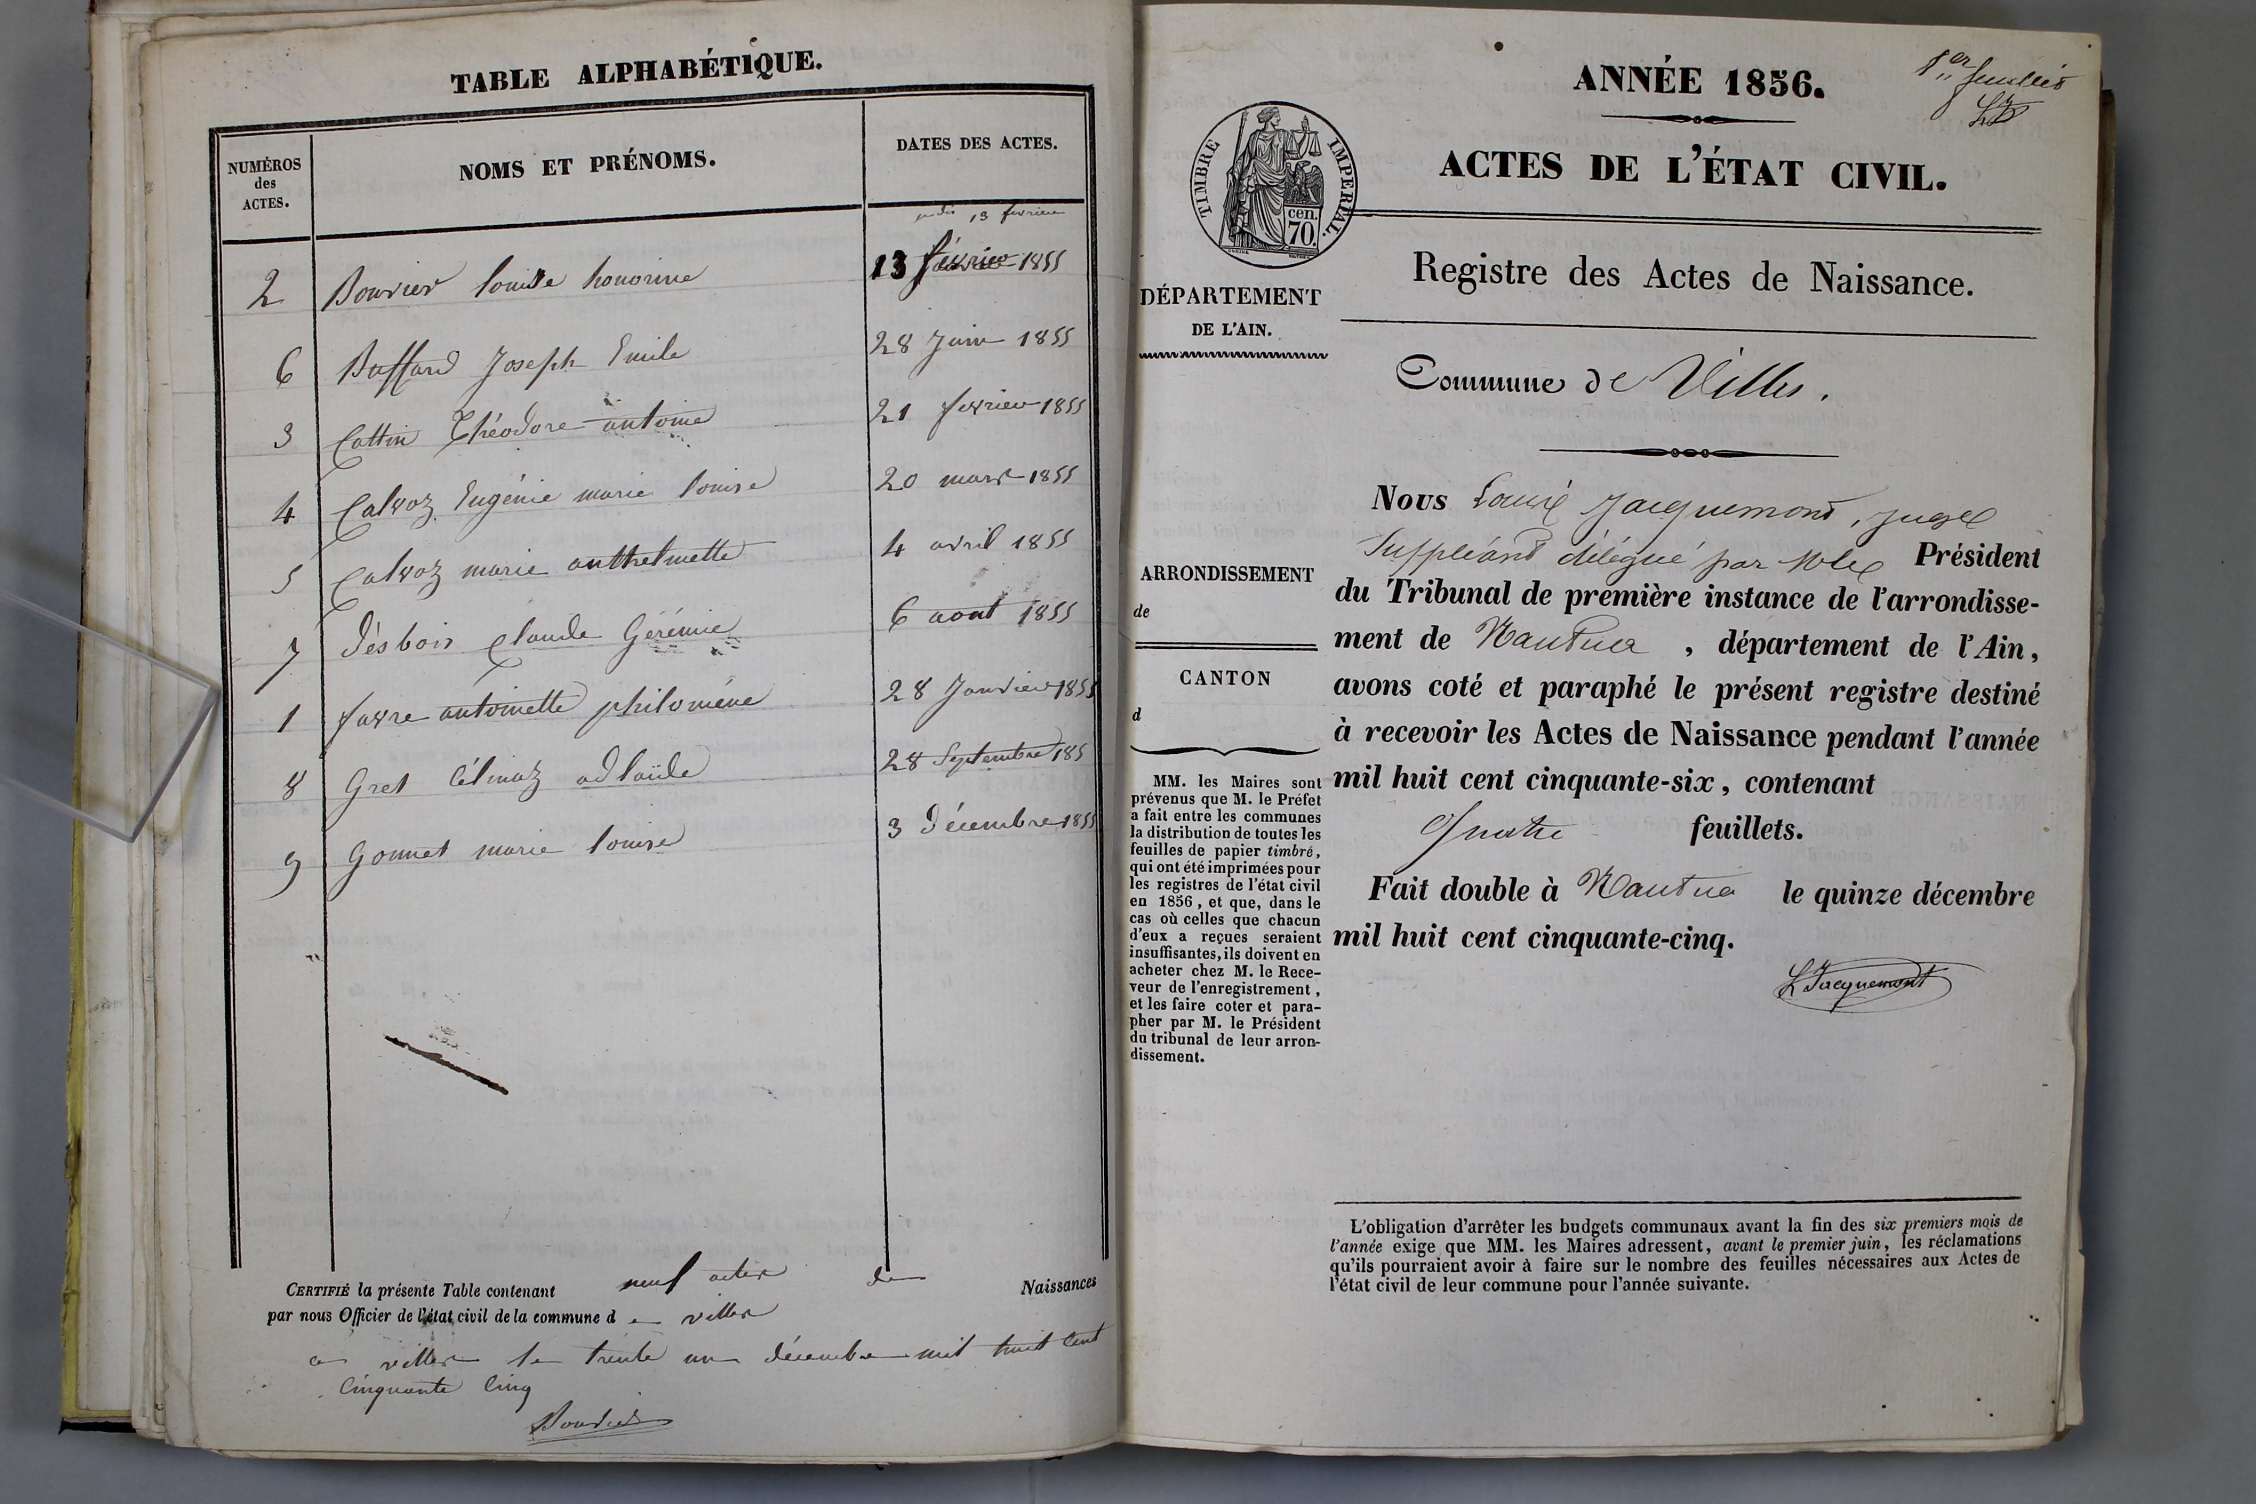 TABLE ALPHABÉTIQUE.
NUMÉROS
des
ACTES.
NOMS ET PRÉNOMS.
DATES DES ACTES.
13 fevrier
2 Bouvier louise honorine 13 février 1855
6 Buffard Joseph Emile 28 Juin 1855
3 Cattin Théodore antoine 21 fevrier 1855
4 Calvoz Eugénie marie louise 20 mars 1855
5 Calvoz marie anthelmette 4 avril 1855
7 désbois Claude Gérémie 6 aout 1855
1 favre antoinette philoméne 28 Janvier 1855
8 Gret Célinaz adlaïde 28 Septembre 185
9 Gonnet marie louise 3 décembre 1855
CERTIFIÉ la présente Table contenant neuf actes de Naissances
par nous Officier de l'état civil de la commune d e villes
a villes le trente un décembre mil huit cent
cinquante cinq
Bouvier
1er feuillet
ANNÉE 1856.
TIMBRE IMPERIAL.
cen.
70.
ACTES DE L'ÉTAT CIVIL.
Registre des Actes de Naissance.
DÉPARTEMENT
DE L'AIN.
Commune de Villes.
Nous Louis Jacquemont, Juge
Suppléant délégué par Mr le Président
du Tribunal de première instance de l'arrondisse-
ment de Nantua , département de l'Ain,
avons coté et paraphé le présent registre destiné
à recevoir les Actes de Naissance pendant l'année
mil huit cent cinquante-six, contenant
Quatre feuillets.
Fait double à Nantua le quinze décembre
mil huit cent cinquante-cinq.
L Jacquemont
ARRONDISSEMENT
de
CANTON
d
MM. les Maires sont
prévenus que M. le Préfet
a fait entre les communes
la distribution de toutes les
feuilles de papier timbré,
qui ont été imprimées pour
les registres de l'état civil
en 1856, et que, dans le
cas où celles que chacun
d'eux a reçues seraient
insuffisantes, ils doivent en
acheter chez M. le Rece-
veur de l'enregistrement,
et les faire coter et para-
pher par M. le Président
du tribunal de leur arron-
dissement.
L'obligation d'arrêter les budgets communaux avant la fin des six premiers mois de
l'année exige que MM. les Maires adressent, avant le premier juin, les réclamations
qu'ils pourraient avoir à faire sur le nombre des feuilles nécessaires aux Actes de
l'état civil de leur commune pour l'année suivante.